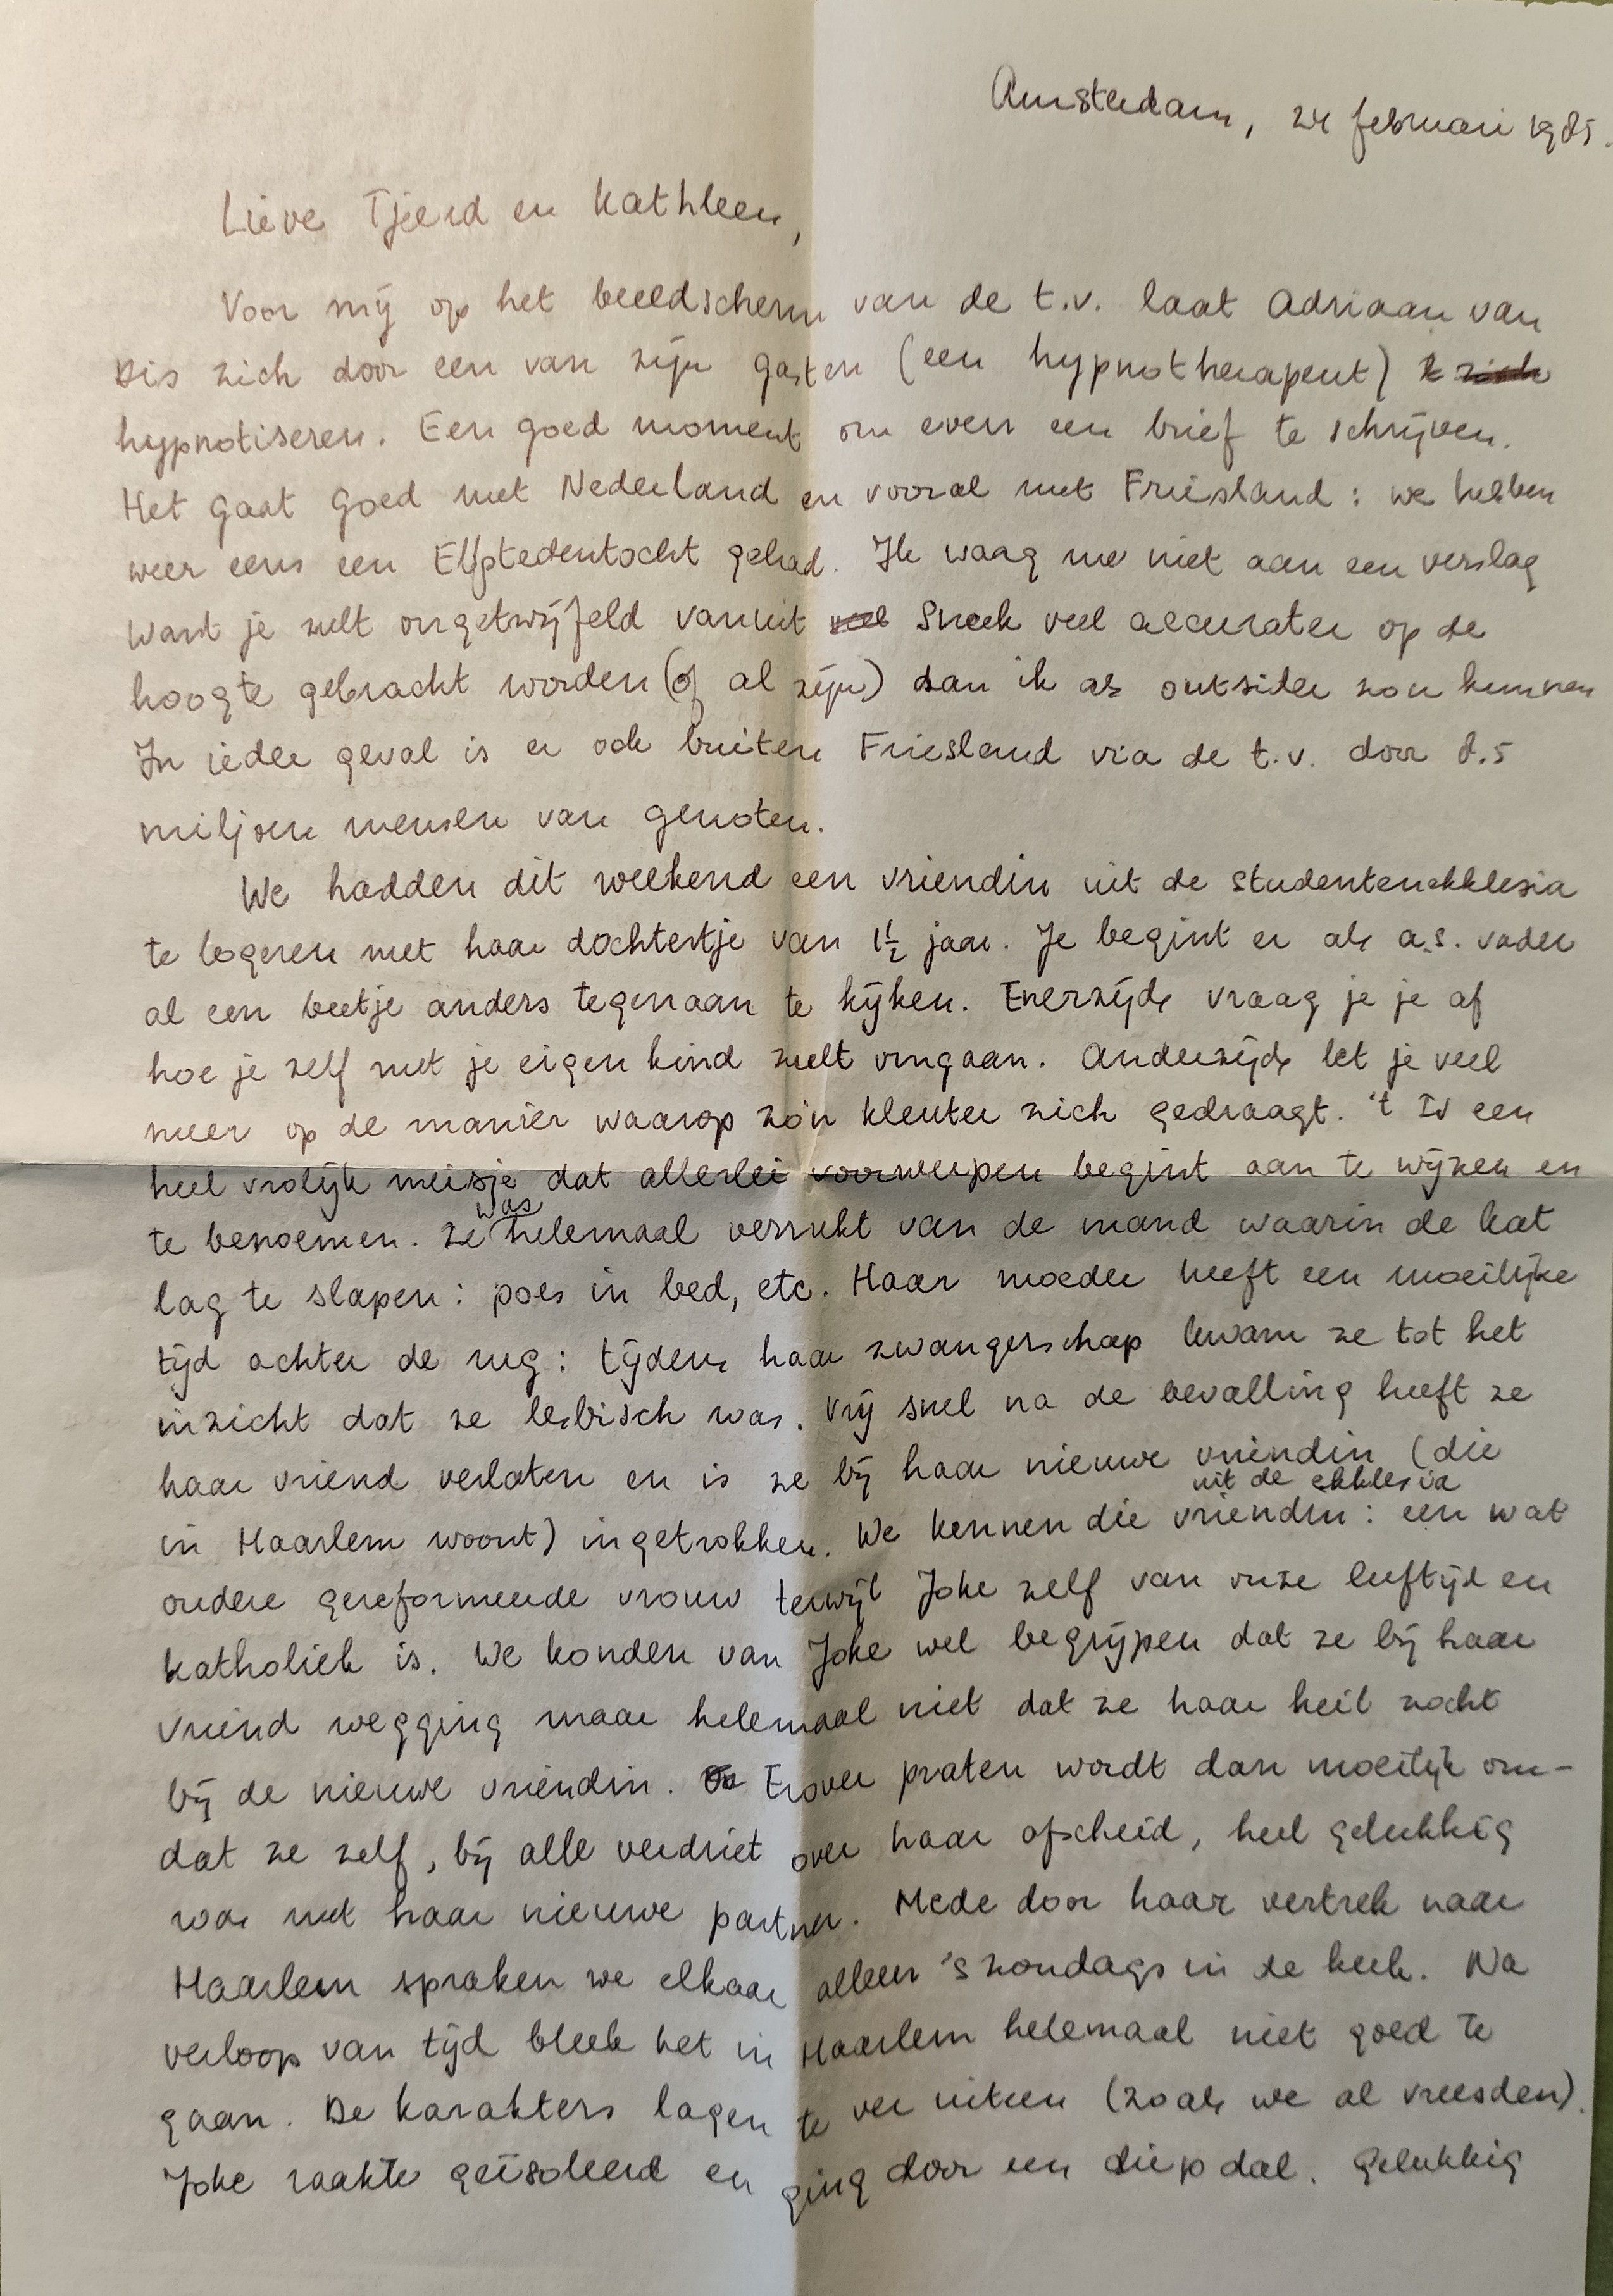 Amsterdam, 24 februari 1985.
Lieve Tjeerd en Kathleen,
Voor mij op het beeldscherm van de t.v. laat Adriaan van
Dis zich door een van zijn gasten (een hypnotherapeut)
hypnotiseren. Een goed moment om even een brief te schrijven.
Het gaat goed met Nederland en vooral met Friesland: we hebben
weer eens een Elfstedentocht gehad. Ik waag me niet aan een verslag
want je zult ongetwijfeld vanuit Sneek veel accurater op de
hoogte gebracht worden (of al zijn) dan ik als outsider zou kunnen
In ieder geval is er ook buiten Friesland via de t.v. door 8.5
miljoen mensen van genoten.
We hadden dit weekend een vriendin uit de studentenekklesia
te logeren met haar dochtertje van 1½ jaar. Je begint er als a.s. vader
al een beetje anders tegenaan te kijken. Enerzijds vraag je je af
hoe je zelf met je eigen kind zult omgaan. Anderzijds let je veel
meer op de manier waarop zo'n kleuter zich gedraagt. 't Is een
heel vrolijk meisje dat allerlei voorwerpen begint aan te wijzen en
te benoemen. Ze was helemaal verrukt van de mand waarin de kat
lag te slapen: poes in bed, etc. Haar moeder heeft een moeilijke
tijd achter de rug: tijdens haar zwangerschap kwam ze tot het
inzicht dat ze lesbisch was. Vrij snel na de bevalling heeft ze
haar vriend verlaten en is ze bij haar nieuwe vriendin (die
in Haarlem woont) ingetrokken. We kennen die vriendin uit de ekklesia: een wat
oudere gereformeerde vrouw terwijl Joke zelf van onze leeftijd en
katholiek is. We konden van Joke wel begrijpen dat ze bij haar
vriend wegging maar helemaal niet dat ze haar heil zocht
bij de nieuwe vriendin. Erover praten wordt dan moeilijk om-
dat ze zelf, bij alle verdriet over haar afscheid, heel gelukkig
was met haar nieuwe partner. Mede door haar vertrek naar
Haarlem spraken we elkaar alleen 's zondags in de kerk. Na
verloop van tijd bleek het in Haarlem helemaal niet goed te
gaan. De karakters lagen te ver uiteen (zoals we al vreesden).
Joke raakte geïsoleerd en ging door een diep dal. Gelukkig